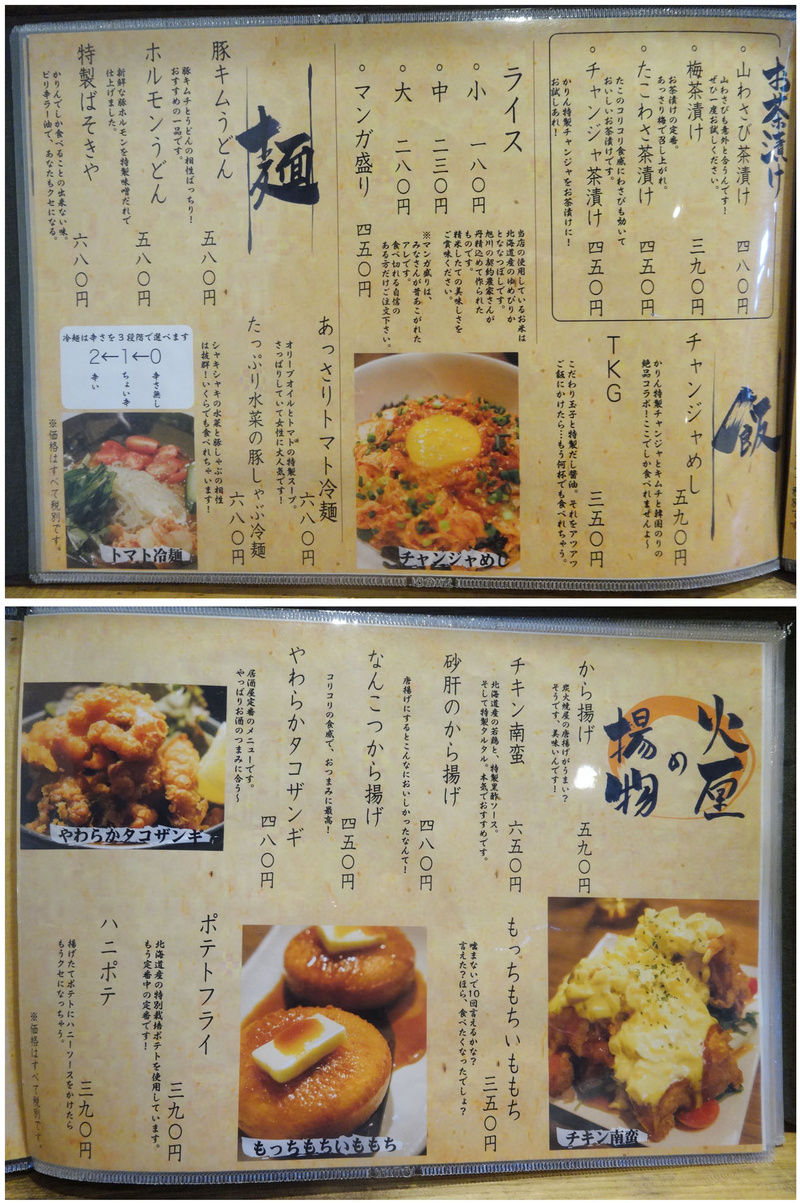 お茶漬け
山わさび茶漬け 四八〇円
山わさびも意外と合うんです!
ぜひ一度お試しください。
梅茶漬け 三九〇円
お茶漬けの定番。
あっさり梅で召し上がれ。
たこわさ茶漬け 四五〇円
たこのコリコリ食感にわさびも効いて
おいしいお茶漬けです。
チャンジャ茶漬け 四五〇円
かりん特製チャンジャをお茶漬けに!
お試しあれ!
飯
チャンジャめし 五九〇円
かりん特製チャンジャとキムチと韓国のりの
絶品コラボ!ここでしか食べれませんよ〜
TKG 三五〇円
こだわり玉子と特製だし醤油。それをアツアツ
ご飯にかけたら…もう何杯でも食べれちゃう。
ライス
小 一八〇円
中 二三〇円
大 二八〇円
マンガ盛り 四五〇円
当店の使用しているお米は
北海道産のゆめぴりか
とななつぼしです。
旭川の契約農家さんが
丹精込めて作られた
ものです。
精米したての美味しさを
ご賞味ください。
※マンガ盛りは、
みなさんが昔あこがれた
アレです。
食べ切れる自信の
ある方だけご注文下さい。
チャンジャめし
麺
豚キムうどん 五八〇円
豚キムチとうどんの相性ばっちり!
おすすめの一品です。
ホルモンうどん 五八〇円
新鮮な豚ホルモンを特製味噌だれで
仕上げました。
特製ばそきや 六八〇円
かりんでしか食べることの出来ない味。
ピリ辛ラー油で、あなたもクセになる。
あっさりトマト冷麺 六八〇円
オリーブオイルとトマトの特製スープ。
さっぱりしていて女性に大人気です!
たっぷり水菜の豚しゃぶ冷麺 六八〇円
シャキシャキの水菜と豚しゃぶの相性
は抜群!いくらでも食べれちゃいます!
冷麺は辛さを3段階で選べます
2←1←0
辛い ちょい辛 辛さ無し
トマト冷麺
※価格はすべて税別です。
火厘
の
揚物
から揚げ 五九〇円
炭火焼屋の唐揚げがうまい?
そうです、美味いんです!
チキン南蛮 六五〇円
北海道産の若鶏と、特製黒酢ソース。
そして特製タルタル。本気でおすすめです。
砂肝のから揚げ 四八〇円
唐揚げにするとこんなにおいしかったなんて!
なんこつから揚げ 四五〇円
コリコリの食感で、おつまみに最高!
やわらかタコザンギ 四八〇円
居酒屋定番のメニューです。
やっぱりお酒のつまみに合う〜
やわらかタコザンギ
チキン南蛮
もっちもちいももち 三五〇円
噛まないで10回言えるかな?
言えた?ほら、食べたくなったでしょ?
もっちもちいももち
ポテトフライ 三九〇円
北海道産の特別栽培ポテトを使用しています。
もう定番中の定番です!
ハニポテ 三九〇円
揚げたてポテトにハニーソースをかけたら
もうクセになっちゃう。
※価格はすべて税別です。